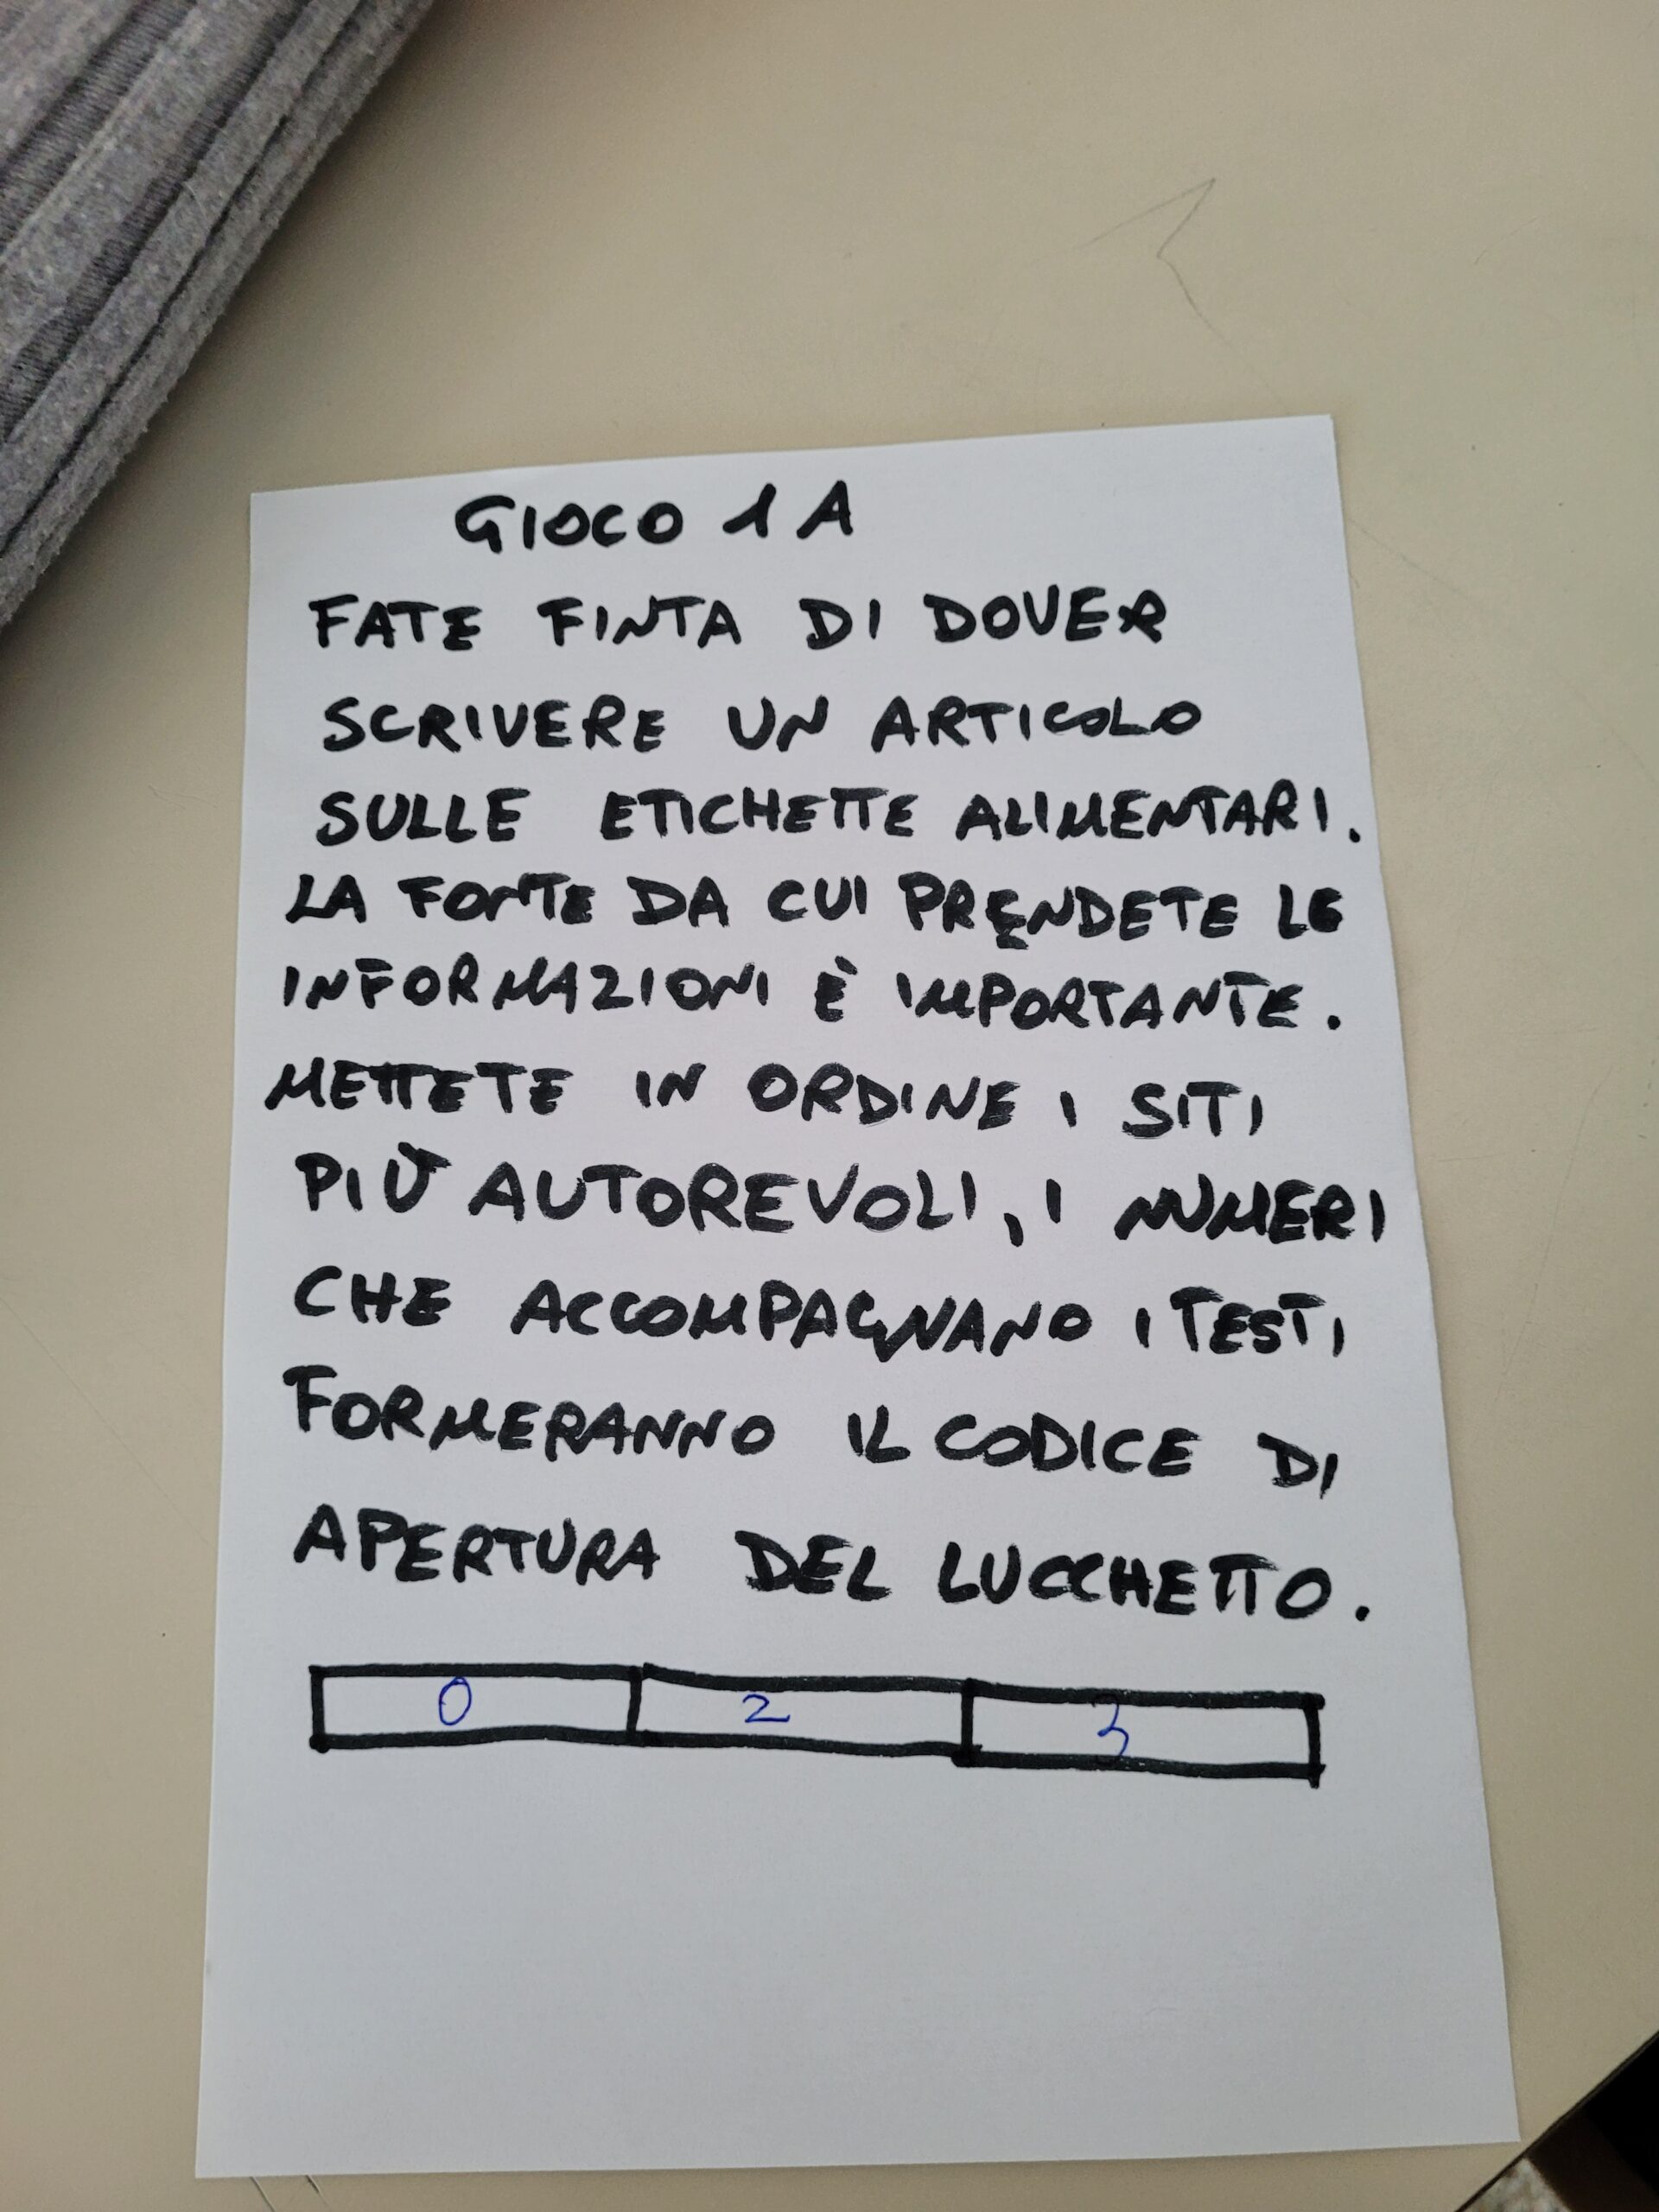 GIOCO 1A
FATE FINTA DI DOVER
SCRIVERE UN ARTICOLO
SULLE ETICHETTE ALIMENTARI.
LA FONTE DA CUI PRENDETE LE
INFORMAZIONI È IMPORTANTE.
METTETE IN ORDINE I SITI
PIÙ AUTOREVOLI, I NUMERI
CHE ACCOMPAGNANO I TESTI
FORMERANNO IL CODICE DI
APERTURA DEL LUCCHETTO.
0 2 3